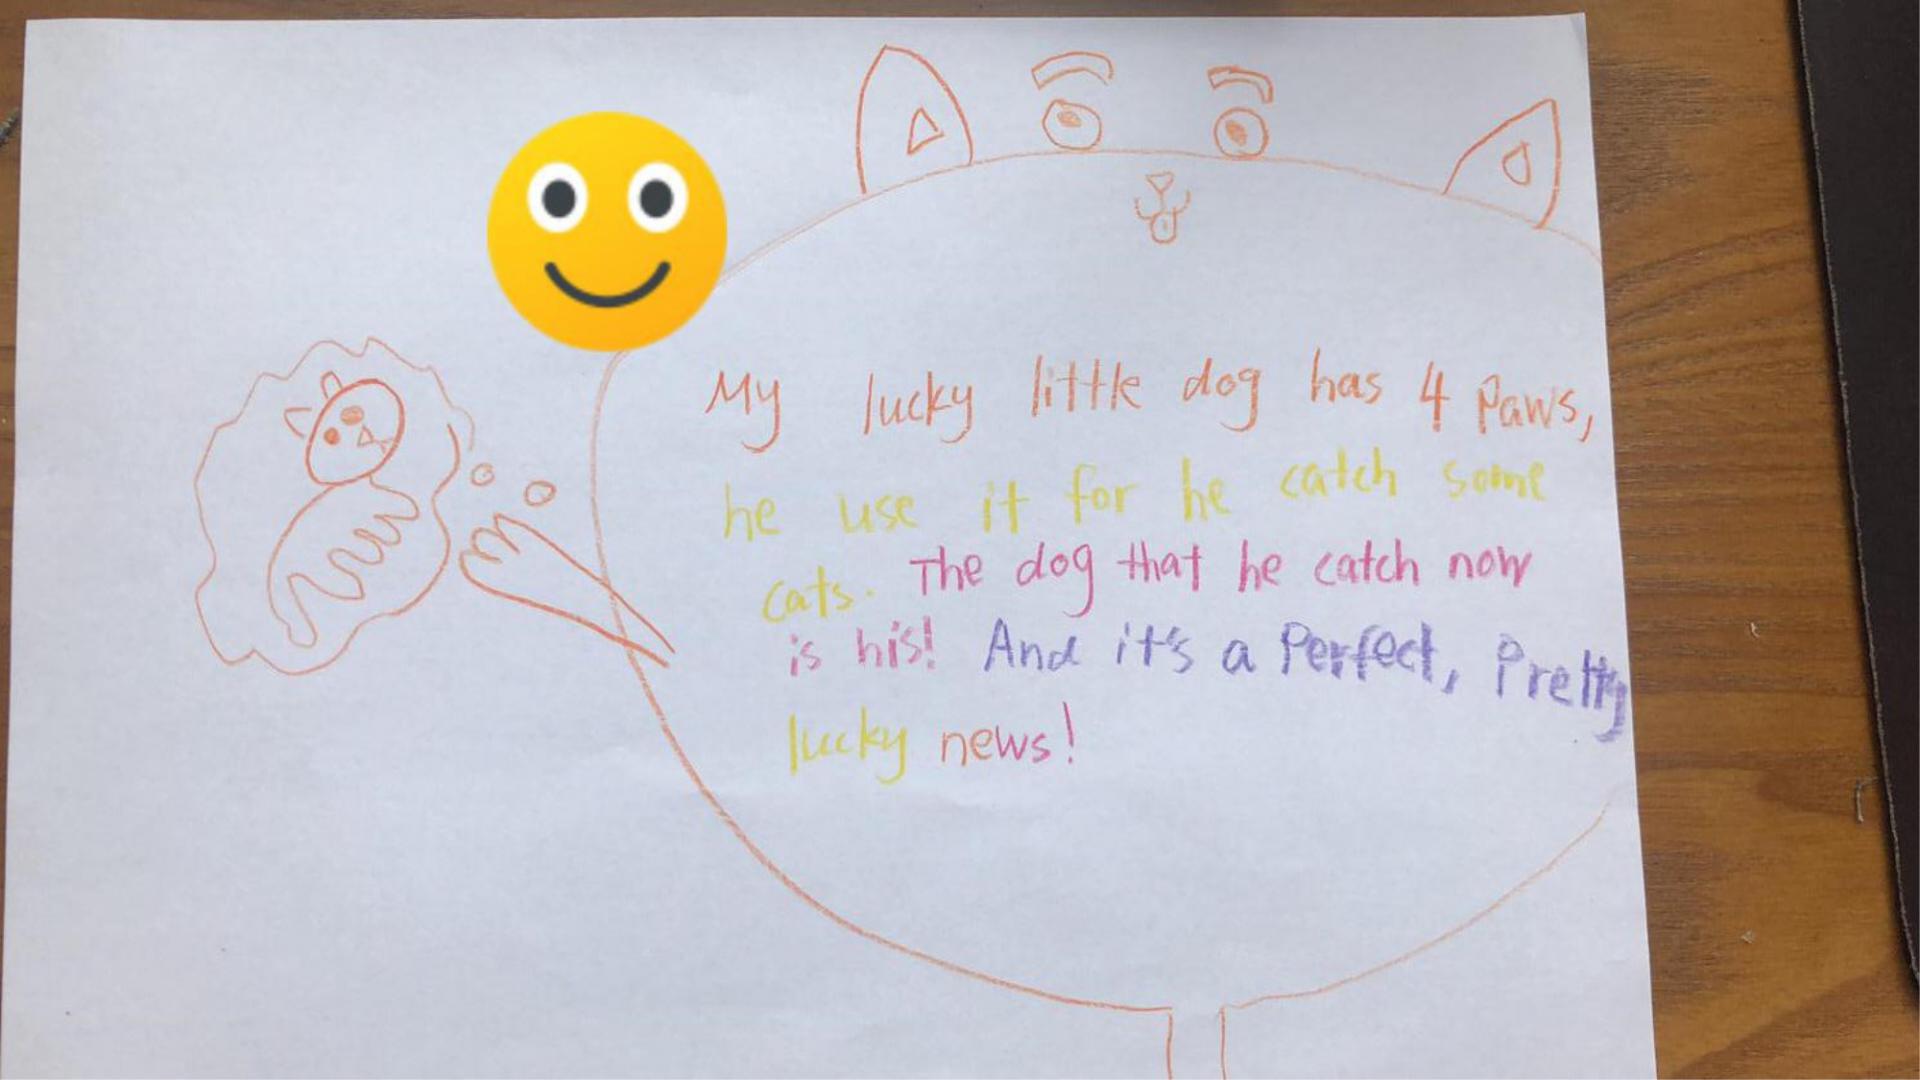 My lucky little dog has 4 Paws,
he use it for he catch some
cats. The dog that he catch now
is his! And it's a Perfect, Pretty
lucky news!